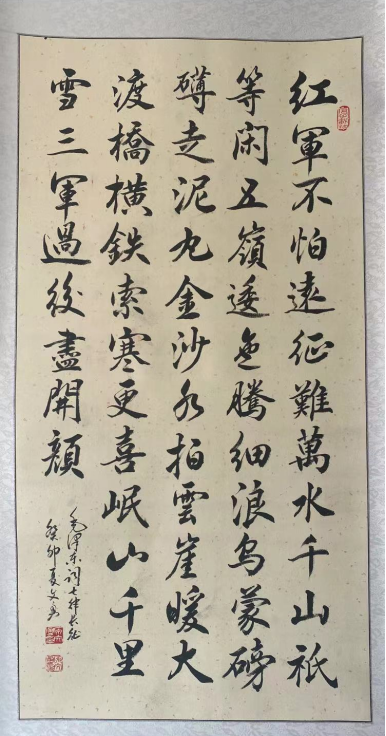 紅軍不怕遠征難萬水千山祇
等閑五嶺逶迤騰細浪烏蒙磅
礴走泥丸金沙水拍雲崖暖大
渡橋橫鉄索寒更喜岷山千里
雪三軍過後盡開顏
毛澤东词七律长征
癸卯夏文